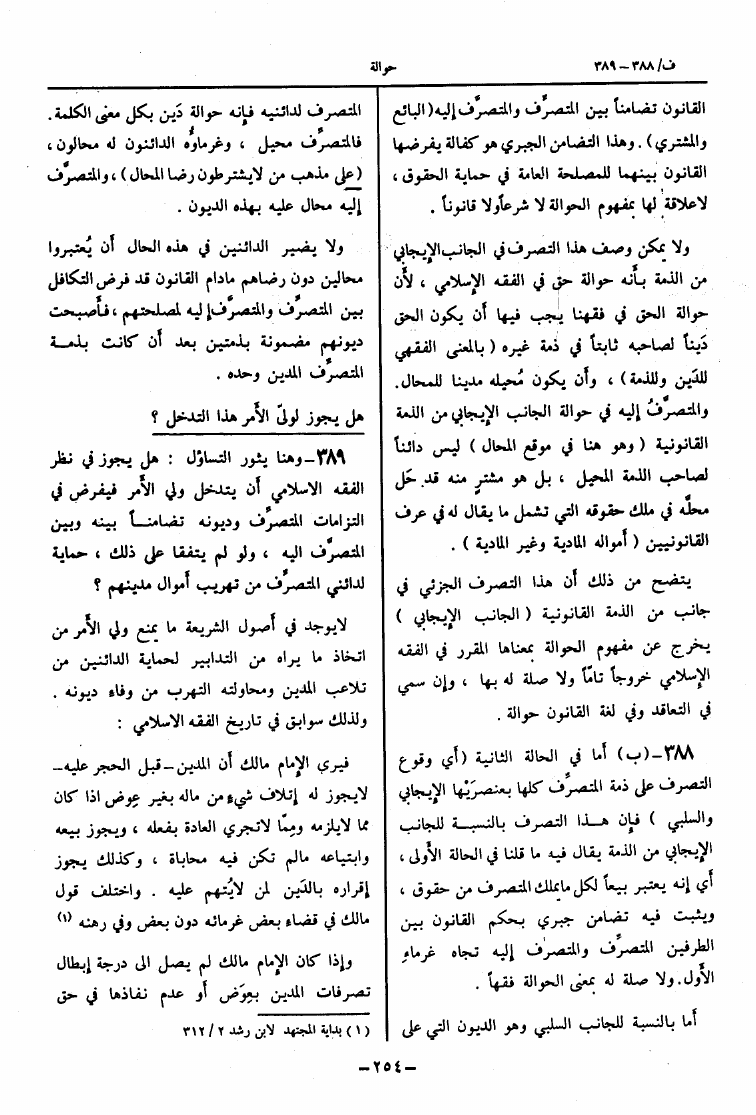 ف/ ٣٨٨ – ٣٨٩
حوالة
القانون تضامناً بين المتصرِّف والمتصرَّف إليه (البائع
والمشتري). وهذا التضامن الجبري هو كفالة يفرضها
القانون بينهما للمصلحة العامة في حماية الحقوق،
لاعلاقة لها بمفهوم الحوالة لا شرعاً ولا قانوناً.
ولا يمكن وصف هذا التصرف في الجانب الإيجابي
من الذمة بأنه حوالة حق في الفقه الإسلامي، لأن
حوالة الحق في فقهنا يجب فيها أن يكون الحق
دَيناً لصاحبه ثابتاً في ذمة غيره (بالمعنى الفقهي
للدَين وللذمة)، وأن يكون مُحيله مدينا للمحال.
والمتصرَّفُ إليه في حوالة الجانب الإيجابي من الذمة
القانونية (وهو هنا في موقع المحال) ليس دائناً
لصاحب الذمة المحيل، بل هو مشترٍ منه قد حَل
محلَّه في ملك حقوقه التي تشمل ما يقال له في عرف
القانونيين (أمواله المادية وغير المادية).
يتضح من ذلك أن هذا التصرف الجزئي في
جانب من الذمة القانونية (الجانب الإيجابي)
يخرج عن مفهوم الحوالة بمعناها المقرر في الفقه
الإسلامي خروجاً تامّاً ولا صلة له بها، وإن سمي
في التعاقد وفي لغة القانون حوالة.
٣٨٨–(ب) أما في الحالة الثانية (أي وقوع
التصرف على ذمة المتصرِّف كلها بعنصرَيْها الإيجابي
والسلبي) فإن هـذا التصرف بالنسبـة للجانب
الإيجابي من الذمة يقال فيه ما قلنا في الحالة الأولى،
أي إنه يعتبر بيعاً لكل مايملك المتصرف من حقوق،
ويثبت فيه تضامن جبري بحكم القانون بين
الطرفين المتصرِّف والمتصرَف إليه تجاه غرماء
الأول. ولا صلة له بمعنى الحوالة فقهاً.
أما بالنسبة للجانب السلبي وهو الديون التي على
المتصرف لدائنيه فإنه حوالة دَين بكل معنى الكلمة.
فالمتصرِّف محيل، وغرماؤه الدائنون له محالون،
(على مذهب من لايشترطون رضا المحال)، والمتصرَّف
إليه محال عليه بهذه الديون.
ولا يضير الدائنين في هذه الحال أن يُعتبروا
محالين دون رضاهم مادام القانون قد فرض التكافل
بين المتصرِّف والمتصرَّف إليه لمصلحتهم، فأصبحت
ديونهم مضمونة بذمتين بعد أن كانت بذمـة
المتصرِّف المدين وحده.
هل يجوز لوليّ الأمر هذا التدخل؟
٣٨٩–وهنا يثور التساؤل: هل يجوز في نظر
الفقه الاسلامي أن يتدخل ولي الأمر فيفرض في
التزامات المتصرِّف وديونه تضامنـاً بينه وبين
المتصرَّف اليه، ولو لم يتفقا على ذلك، حماية
لدائني المتصرِّف من تهريب أموال مدينهم؟
لايوجد في أصول الشريعة ما يمنع ولي الأمر من
اتخاذ ما يراه من التدابير لحماية الدائنين من
تلاعب المدين ومحاولته التهرب من وفاء ديونه.
ولذلك سوابق في تاريخ الفقه الاسلامي:
فيرى الإمام مالك أن المدين – قبل الحجر عليه–
لايجوز له إتلاف شيء من ماله بغير عِوض اذا كان
مما لايلزمه وممّا لاتجري العادة بفعله، ويجوز بيعه
وابتياعه مالم تكن فيه محاباة، وكذلك يجوز
إقراره بالدَين لمن لايُتهم عليه. واختلف قول
مالك في قضاء بعض غرمائه دون بعض وفي رهنه (١)
وإذا كان الإمام مالك لم يصل الى درجة إبطال
تصرفات المدين بعِوَض أو عدم نفاذها في حق
(١) بداية المجتهد لابن رشد ٢/٣١٢
–٢٥٤–